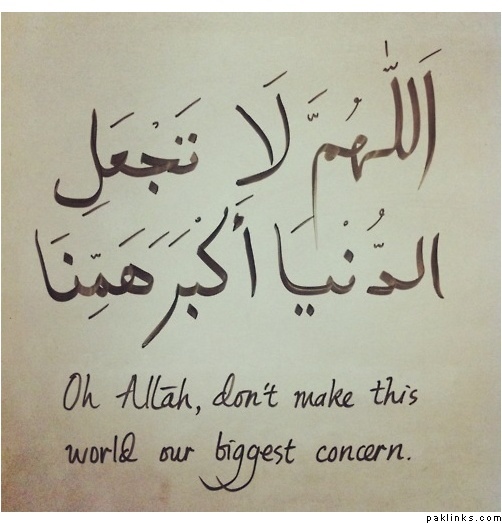 اَللّٰهُمَّ لَا تَجْعَلِ
الدُّنْيَا أَكْبَرَ هَمِّنَا
Oh Allāh, don't make this
world our biggest concern.
paklinks.com